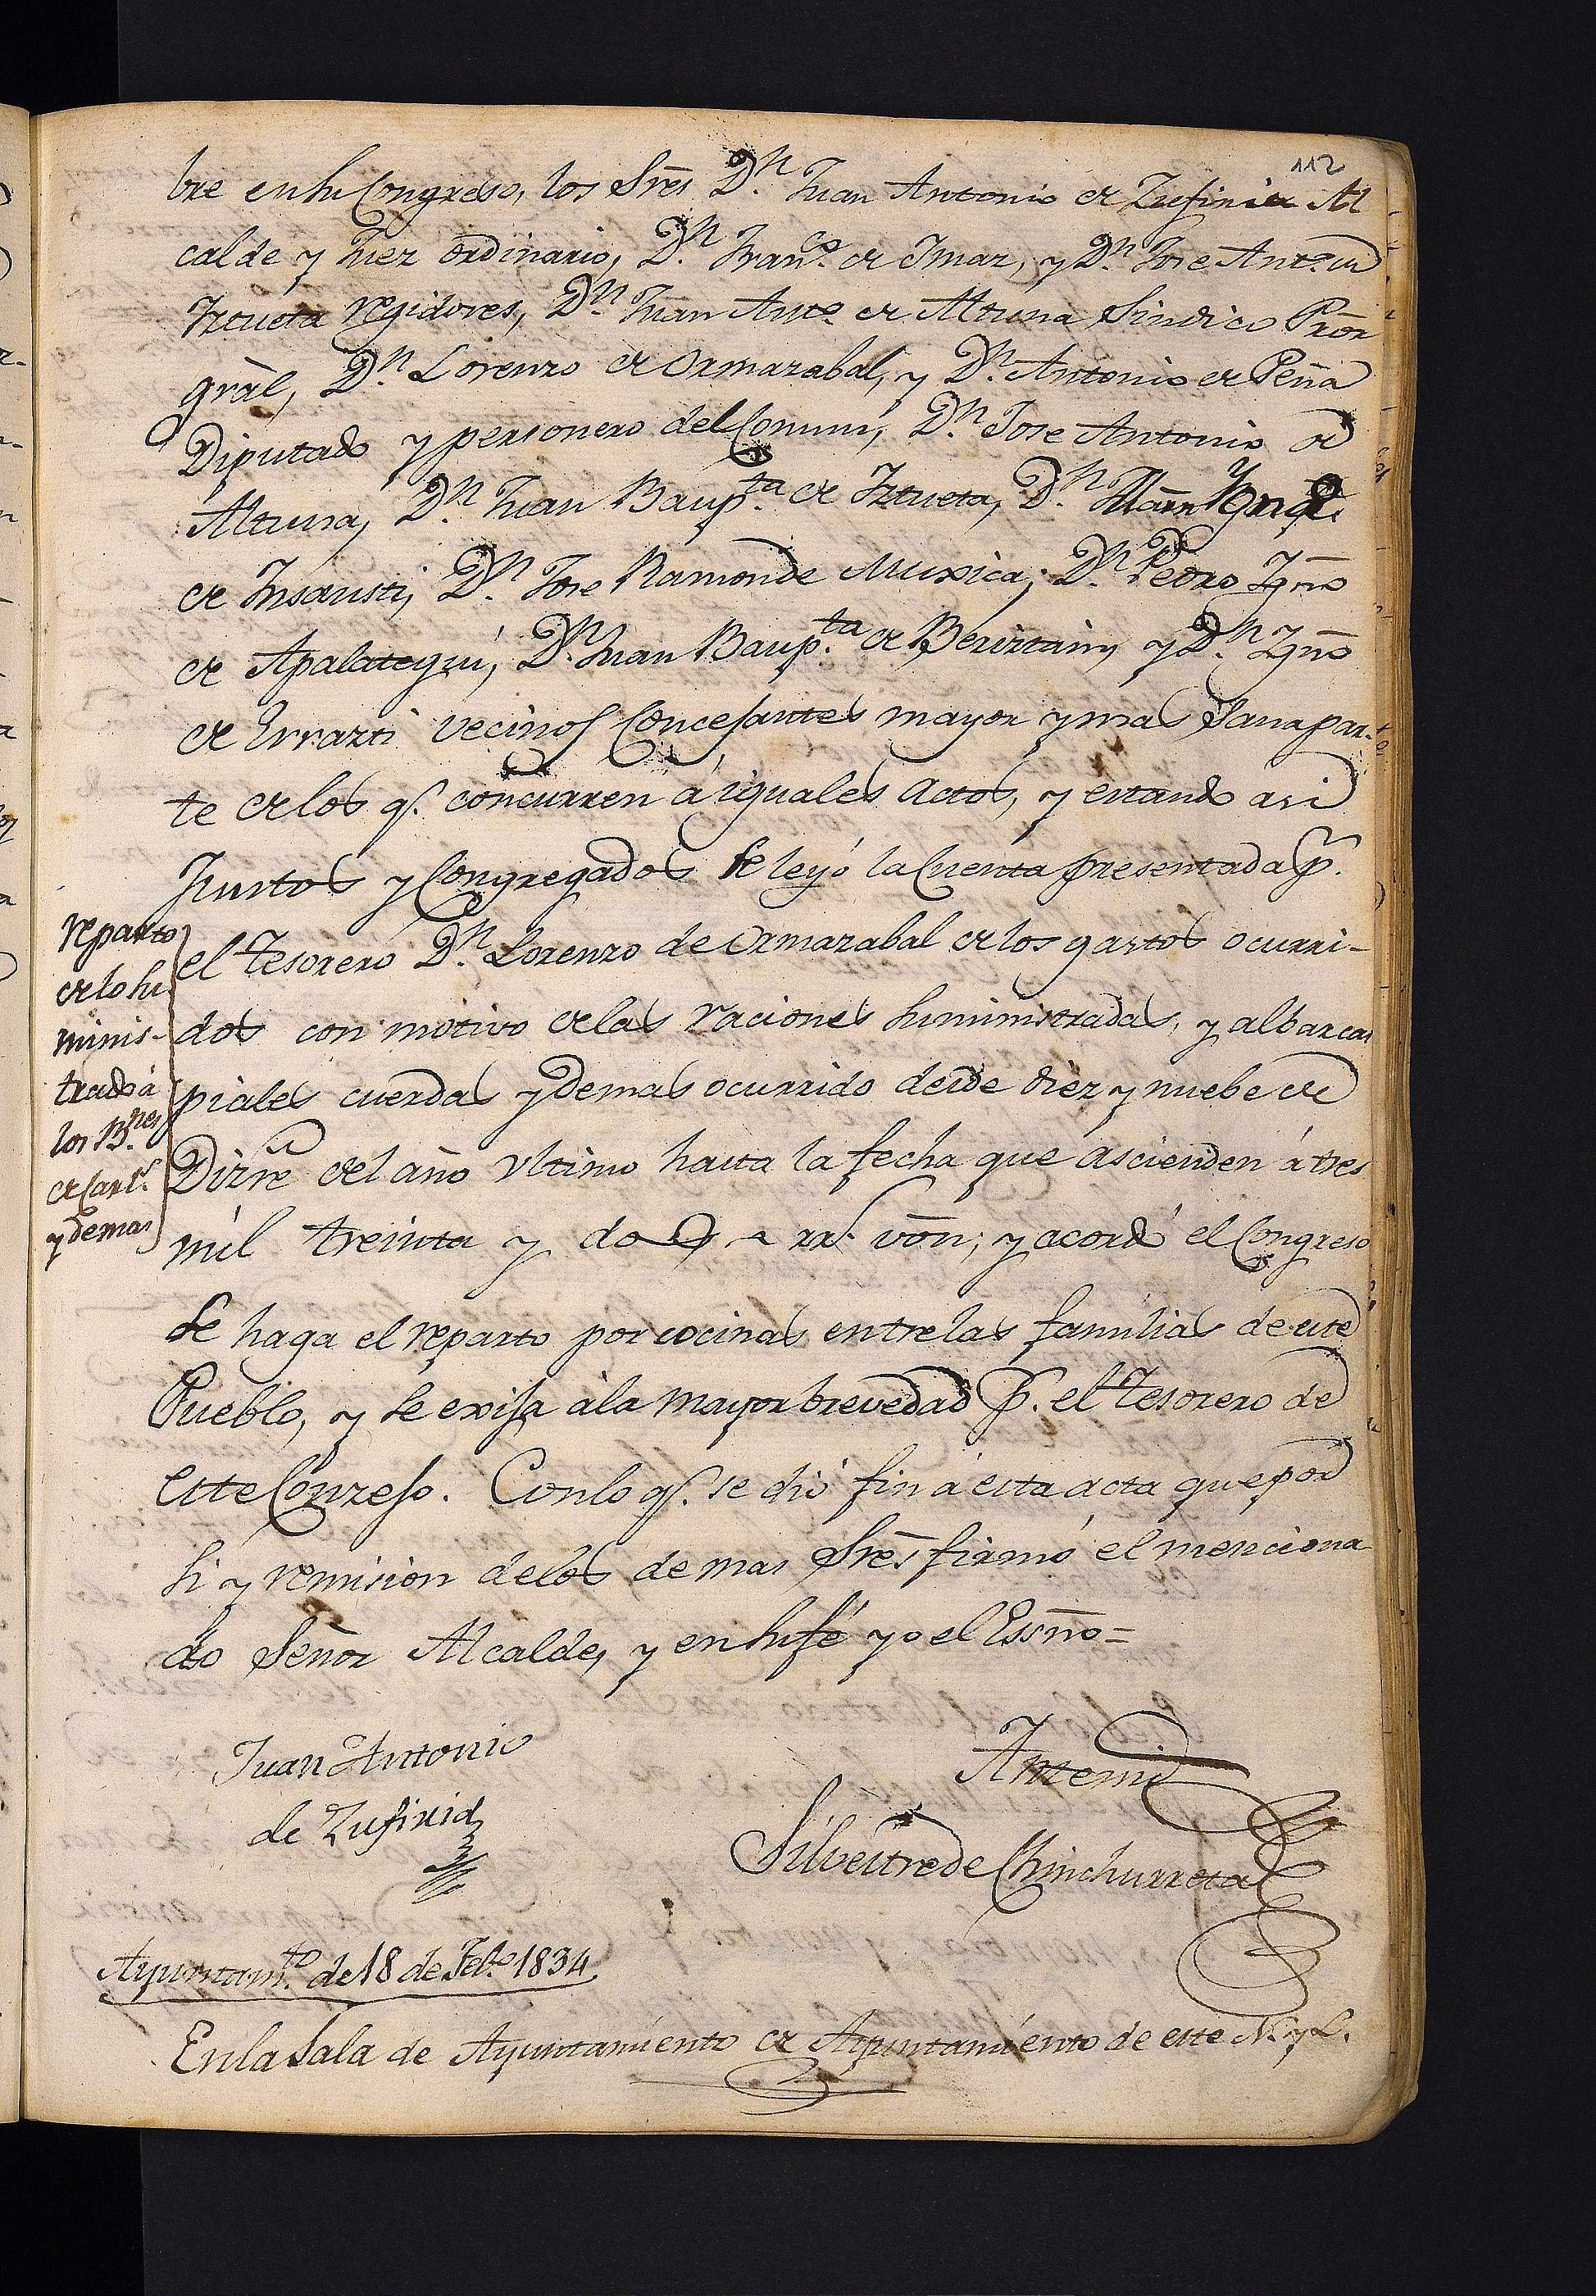 112
bre en su Congreso, los Sres Dn. Juan Antonio de Zufiria Al
calde y Juez ordinario, Dn. Franco. de Imaz, y Dn. Jose Anto. de
Iztueta regidores, Dn. Juan Anto. de Altuna Sindico Pror
gràl, Dn. Lorenzo de Ormazabal, y Dn. Antonio de Peña
Diputado y personero del Comun, Dn. Jose Antonio de
Altuna, Dn. Juan Baupta. de Iztueta, Dn.
de Insausti, Dn. Jose Ramon de Muxica, Dn. Pedro Igno
de Apalategui, Dn. Juan Baupta. de Beriztain, y Dn. Igno
de Errazti vecinos Concejantes mayor y mas sana par-
te de los q. concurren à iguales actos, y estando asi
Juntos y Congregados se leyó la Cuenta presentada p.
el Tesorero Dn. Lorenzo de Ormazabal de los gastos ocurri-
dos con motivo de las raciones suministradas, y albarcas
piales cuerdas y demas ocurrido desde diez y nuebe de
Dizre del año ultimo hasta la fecha que ascienden á tres
mil treinta y dos rs. von; y acordó el Congreso
se haga el reparto por cocinas entre las familias de este
Pueblo, y se exija à la mayor brevedad p. el Tesorero de
este Conzejo. Con lo q. se dió fin á esta acta que por
si y remision de los demas Sres firmó el menciona
do Señor Alcalde, y en su fé yo el Essno=
reparto
de lo su
minis-
trado á
los Bnes
de Carls.
y demas
Juan Antonio
de Zufiria
Antemi
Silvestre de Chinchurreta
Ayuntamto. de 18 de Febo. 1834
En la Sala de Ayuntamiento de Ayuntamiento de este N. y L.